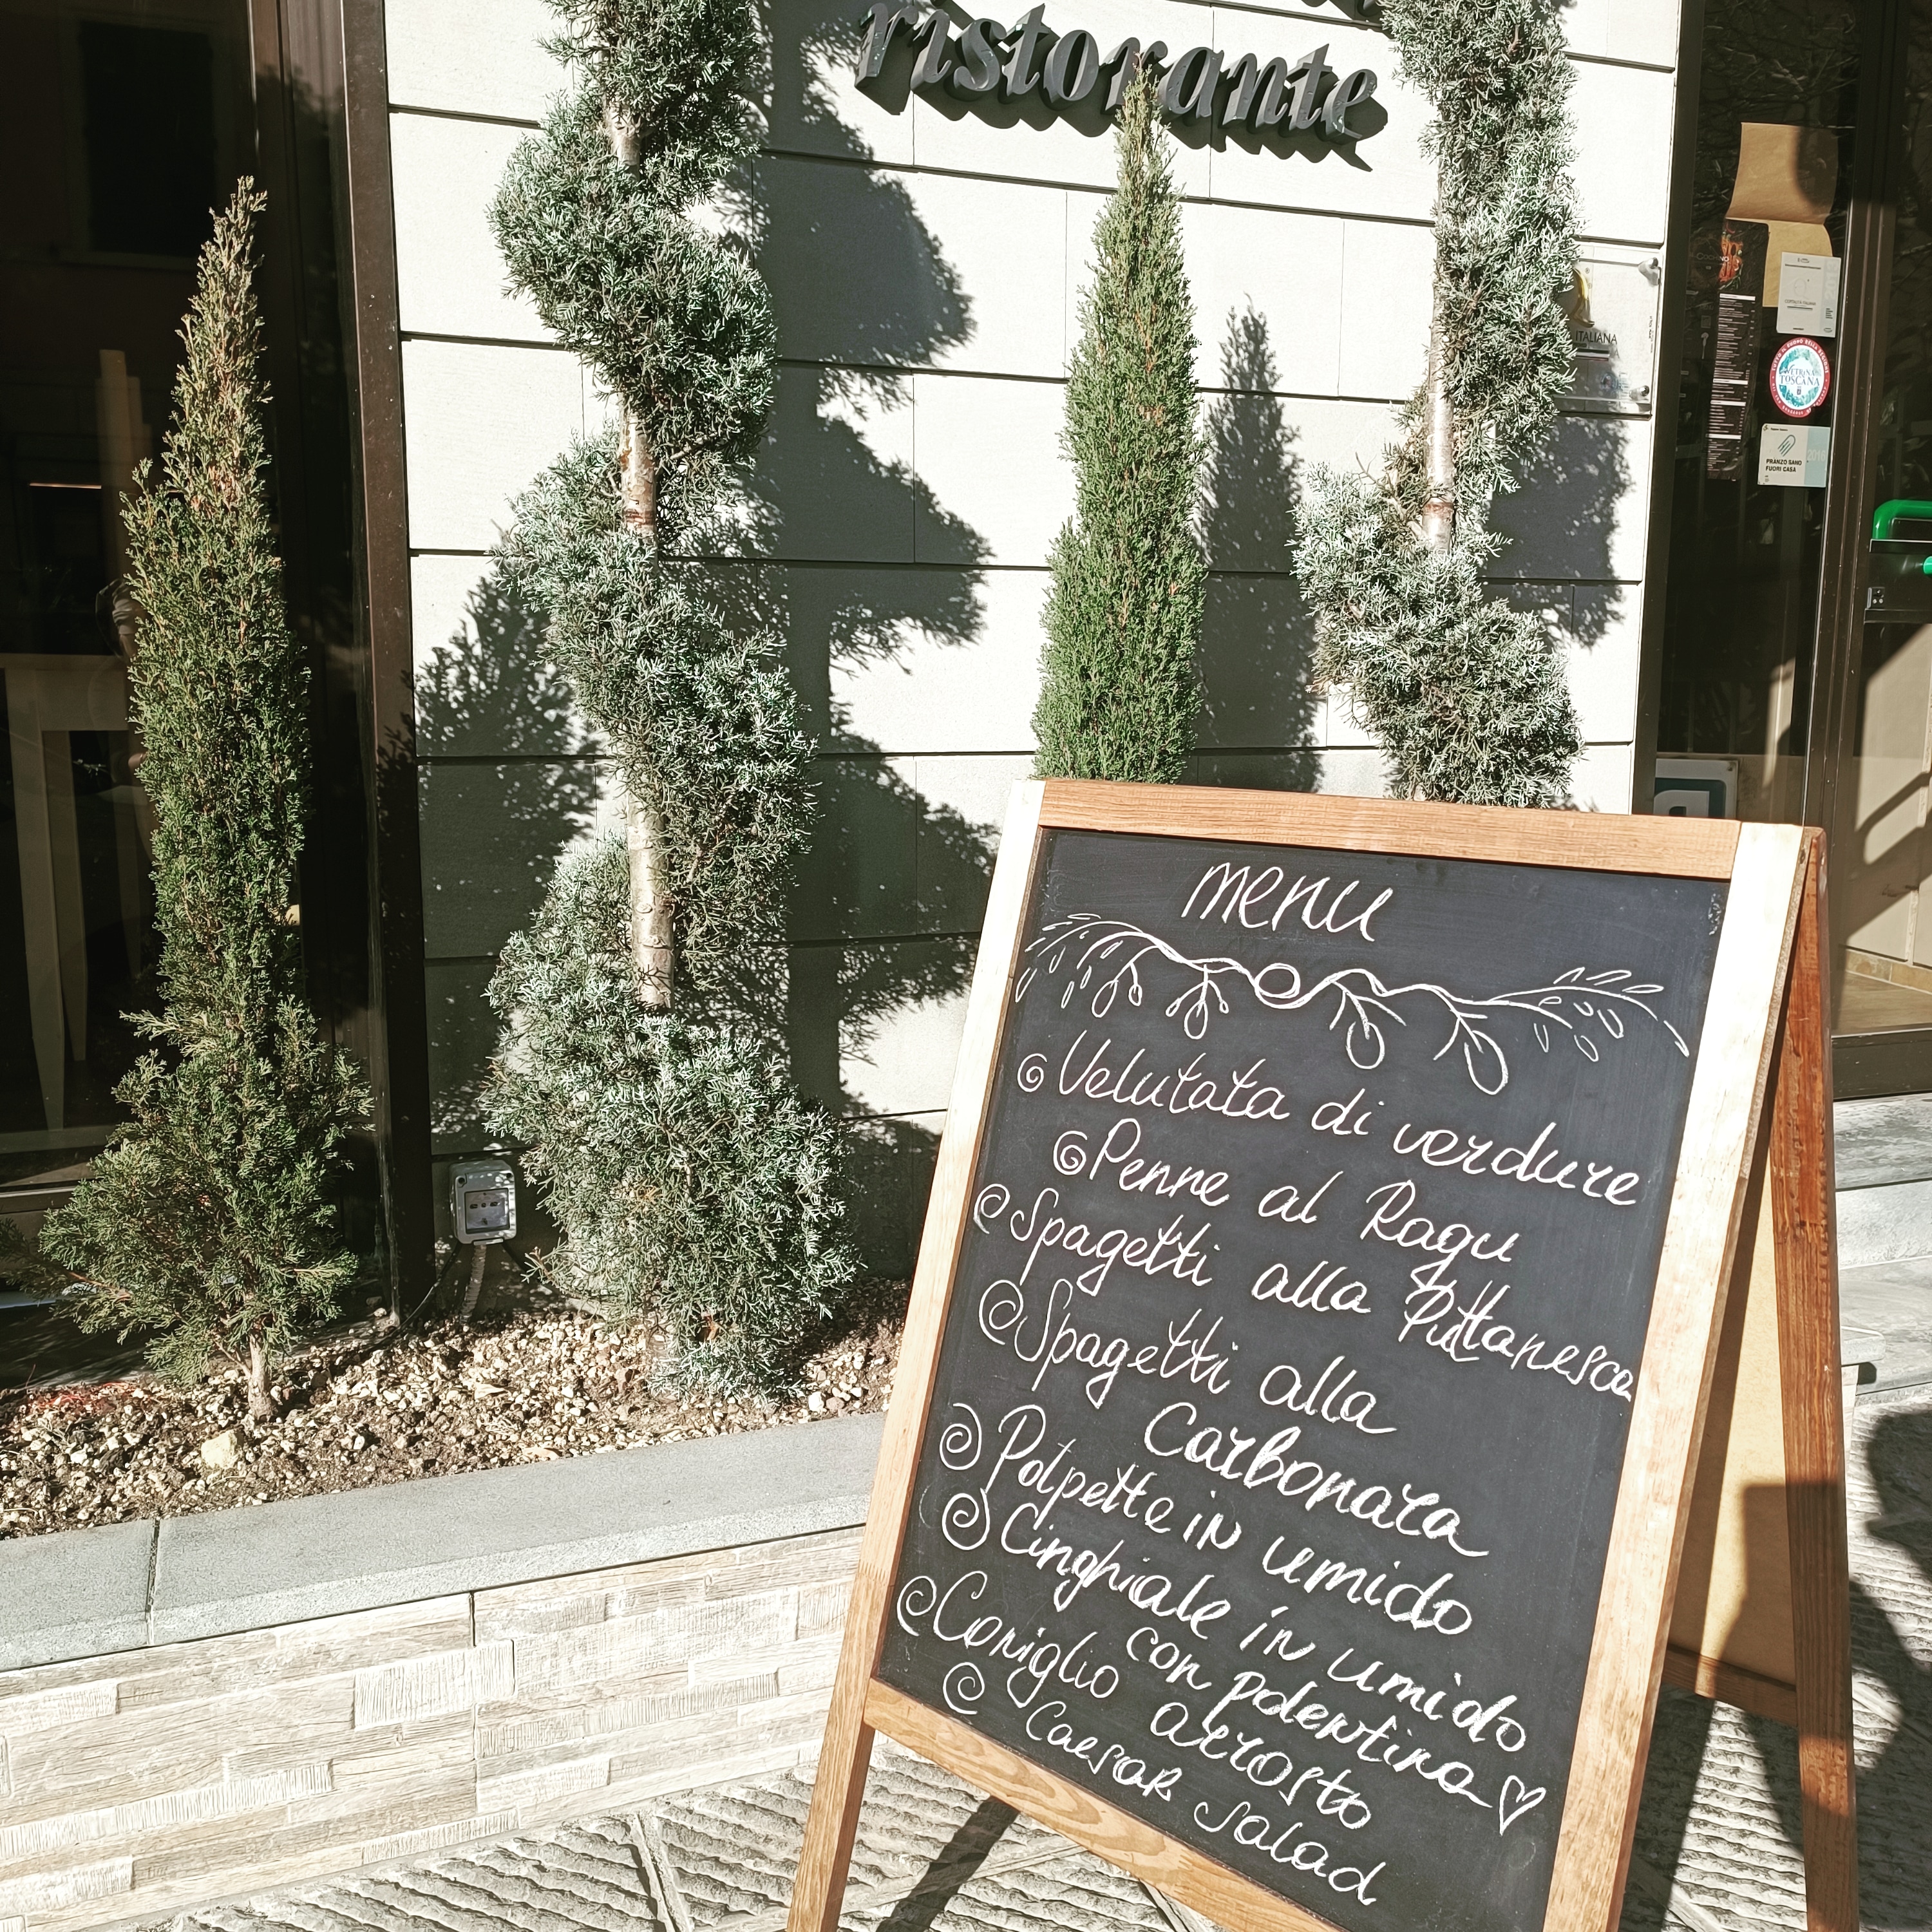 ristorante
ITALIANA
VETRINA
TOSCANA
PRANZO SANO
FUORI CASA
menu
Velutata di verdure
Penne al Ragu
Spagetti alla Puttanesca
Spagetti alla
Carbonara
Polpette in umido
Cinghiale in umido
con polentina
Coniglio arrosto
Caesar salad